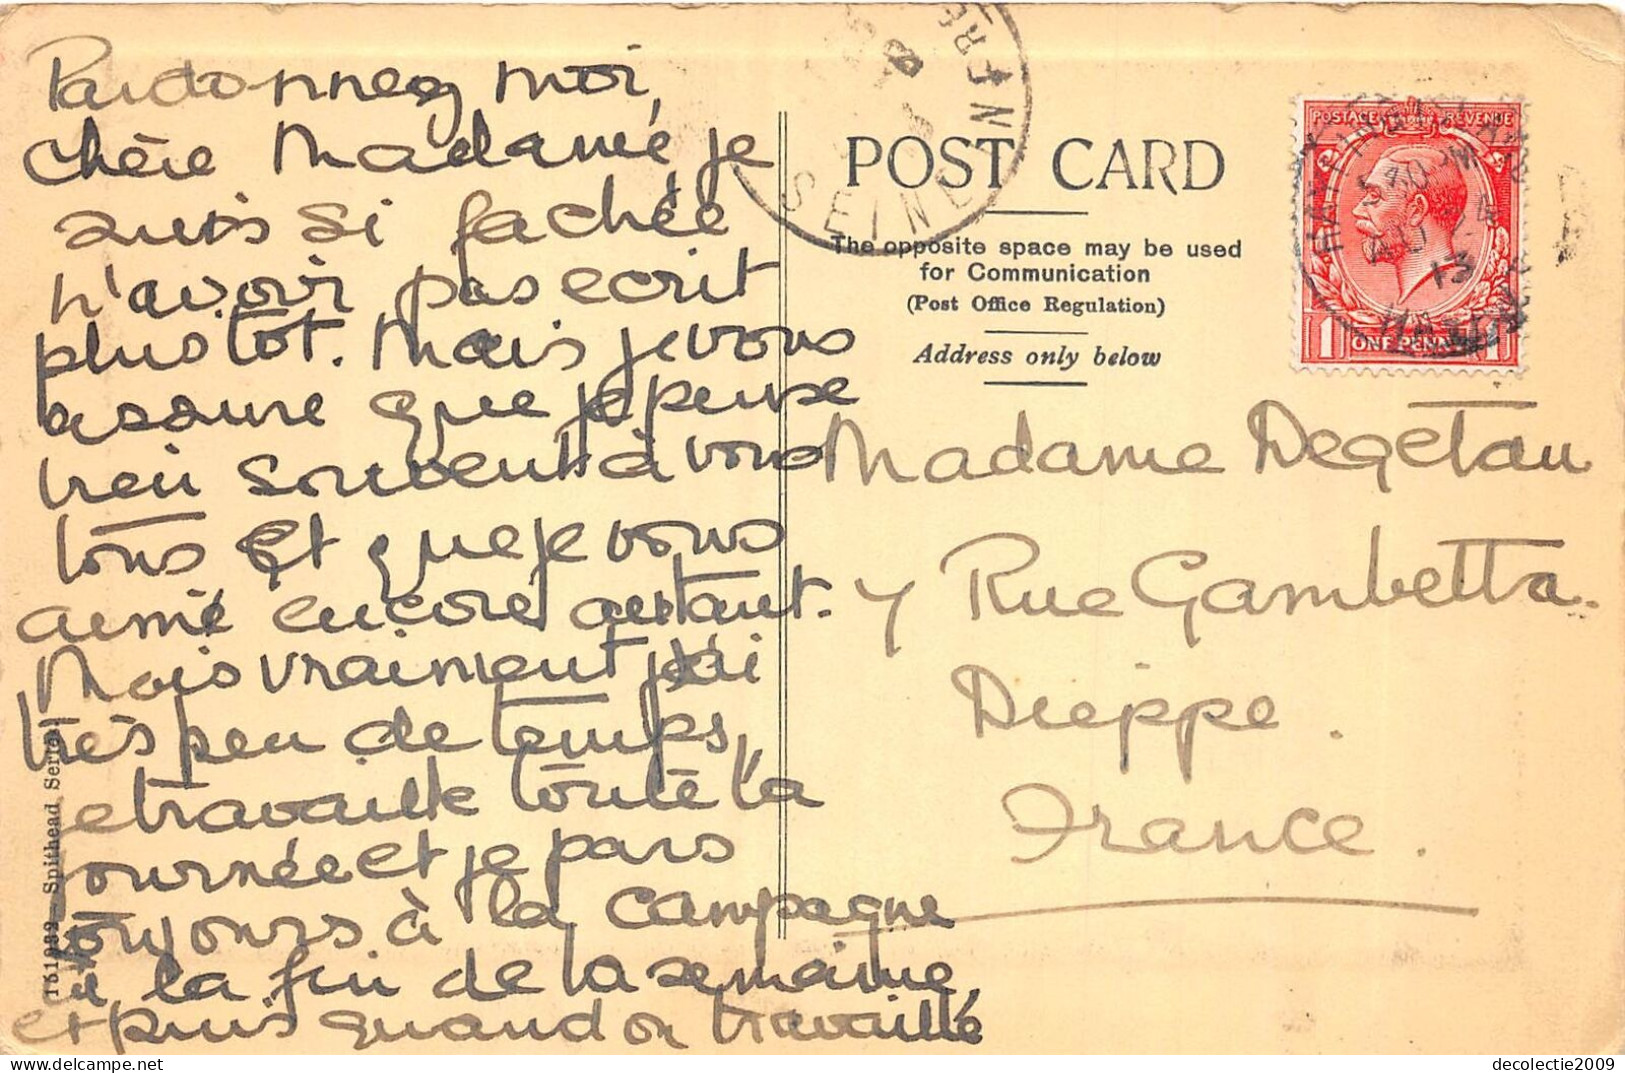 Pardonnez moi,
chère Madame, je
suis si fachée
n'avoir pas ecrit
plus tot. Mais je vous
assure que je pense
bien souvent à vous
tous et que je vous
aime encore autant.
Mais vraiment j'ai
très peu de temps,
je travaille toute la
journée et je pars
toujours à la campagne
à la fin de la semaine,
et puis quand on travaille
151982 - Spithead Series
POST CARD
The opposite space may be used
for Communication
(Post Office Regulation)
Address only below
Madame Degetau
4 Rue Gambetta.
Dieppe.
France.
POSTAGE REVENUE
1 ONE PENNY 1
AU 24
13
SEINE
decolectie2009